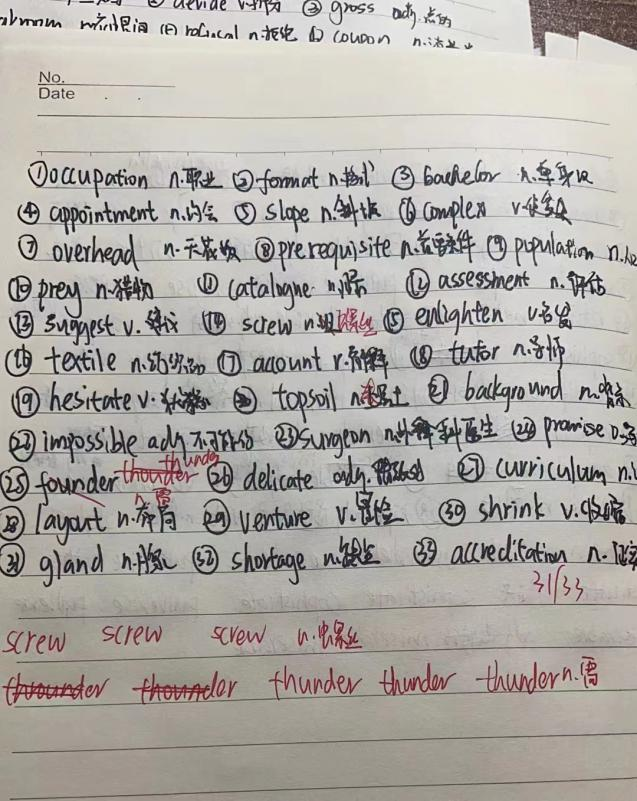 ② devide v. ③ gross adj.
n. ⑪ coupon n.
No.
Date
①occupation n.职业 ②format n.格式 ③ bachelor n.单身汉
④ appointment n.约会 ⑤ slope n.斜坡 ⑥ complex v.
⑦ overhead n.天花板 ⑧prerequisite n.前提条件 ⑨ population n.
⑩ prey n.猎物 ⑪ catalogne n. ⑫ assessment n.评估
⑬ suggest v.建议 ⑭ screw n. 螺丝 ⑮ enlighten v.启发
⑯ textile n.纺织品 ⑰ account v.解释 ⑱ tutor n.导师
⑲ hesitate v.犹豫 ⑳ topsoil n.表土 ㉑ background n.背景
㉒ impossible adj.不可能的 ㉓surgeon n.外科医生 ㉔ promise n.
㉕ founder thounder thunder n.雷 ㉖ delicate adj. ㉗ curriculum n.
㉘ layout n.布局 ㉙ venture v.冒险 ㉚ shrink v.收缩
㉛ gland n.腺 ㉜ shortage n.短缺 ㉝ accreditation n.
31/33
screw screw screw n.螺丝
thounder thounder thunder thunder thunder n.雷